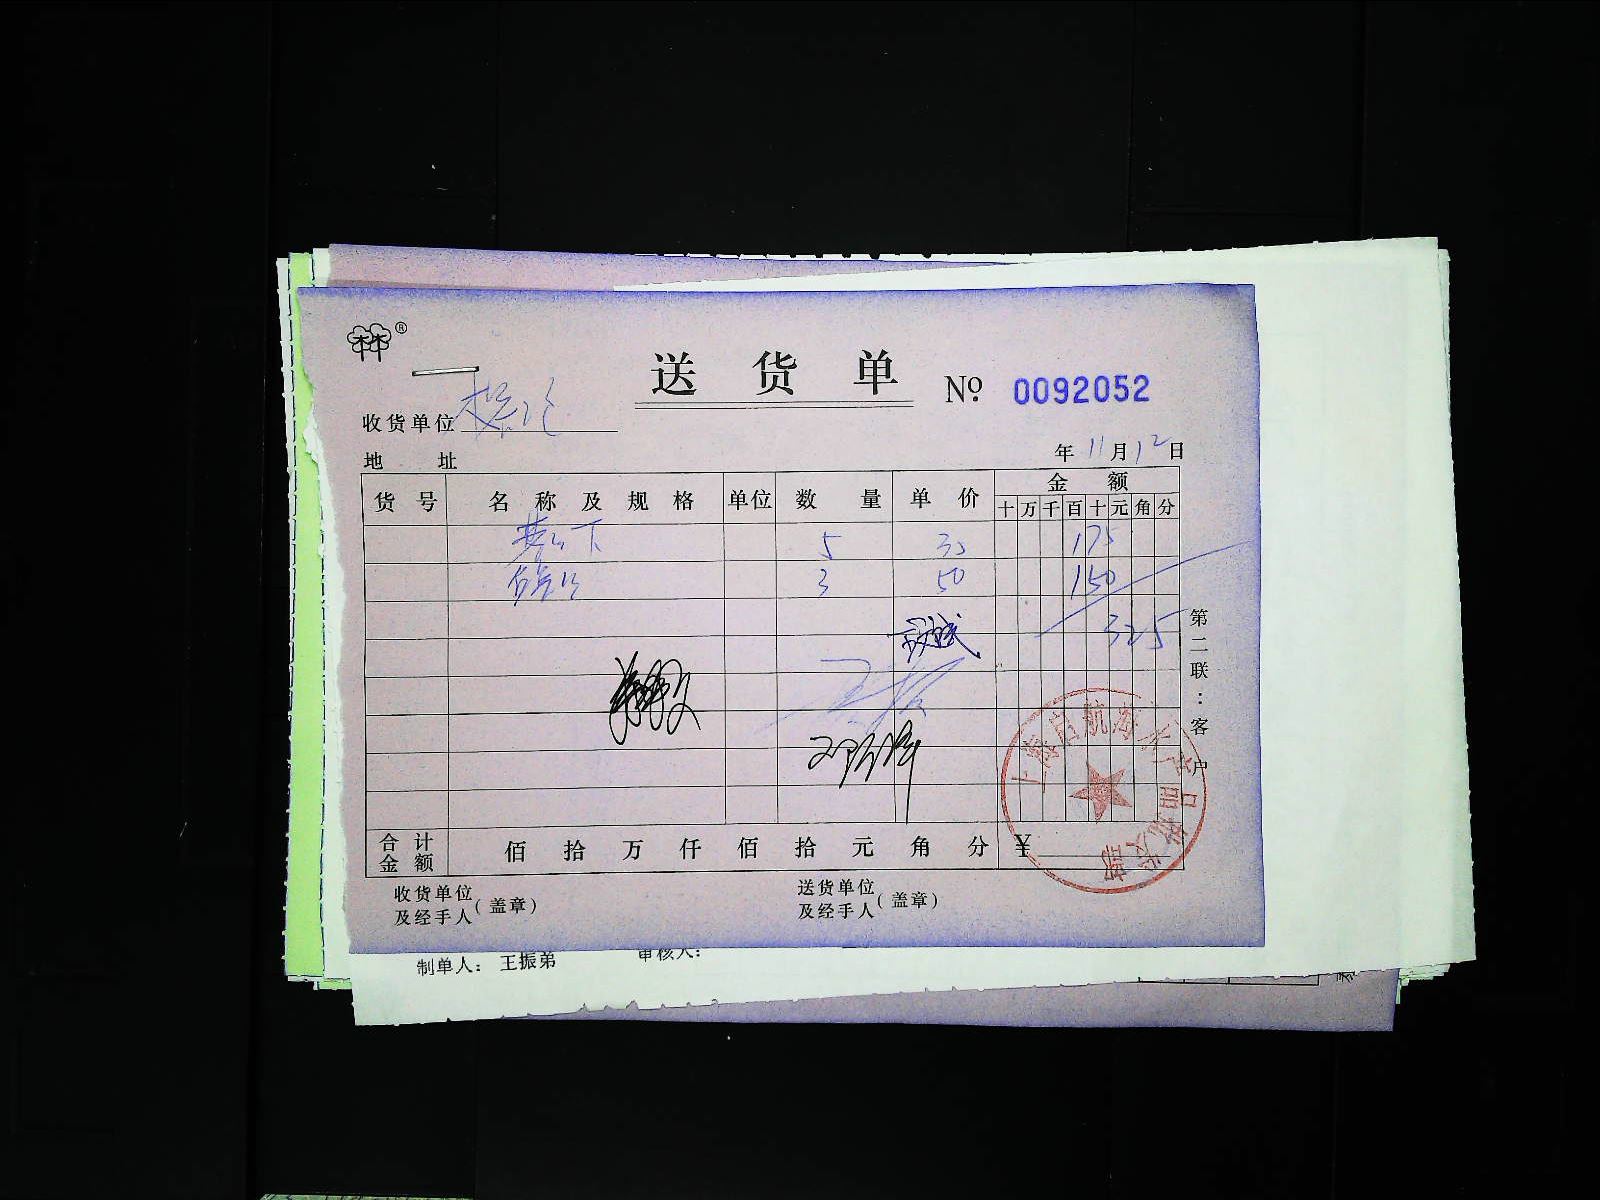 ®
送 货 单 № 0092052
收货单位
地 址 年 11 月 12 日
货 号 名 称 及 规 格 单位 数 量 单 价 金 额
十 万 千 百 十 元 角 分
5 175
3 50 150
325
第二联：客户
上海启航海水产品批发部
合计金额 佰 拾 万 仟 佰 拾 元 角 分 ¥
收货单位及经手人（盖章） 送货单位及经手人（盖章）
制单人： 王振弟 审核人：